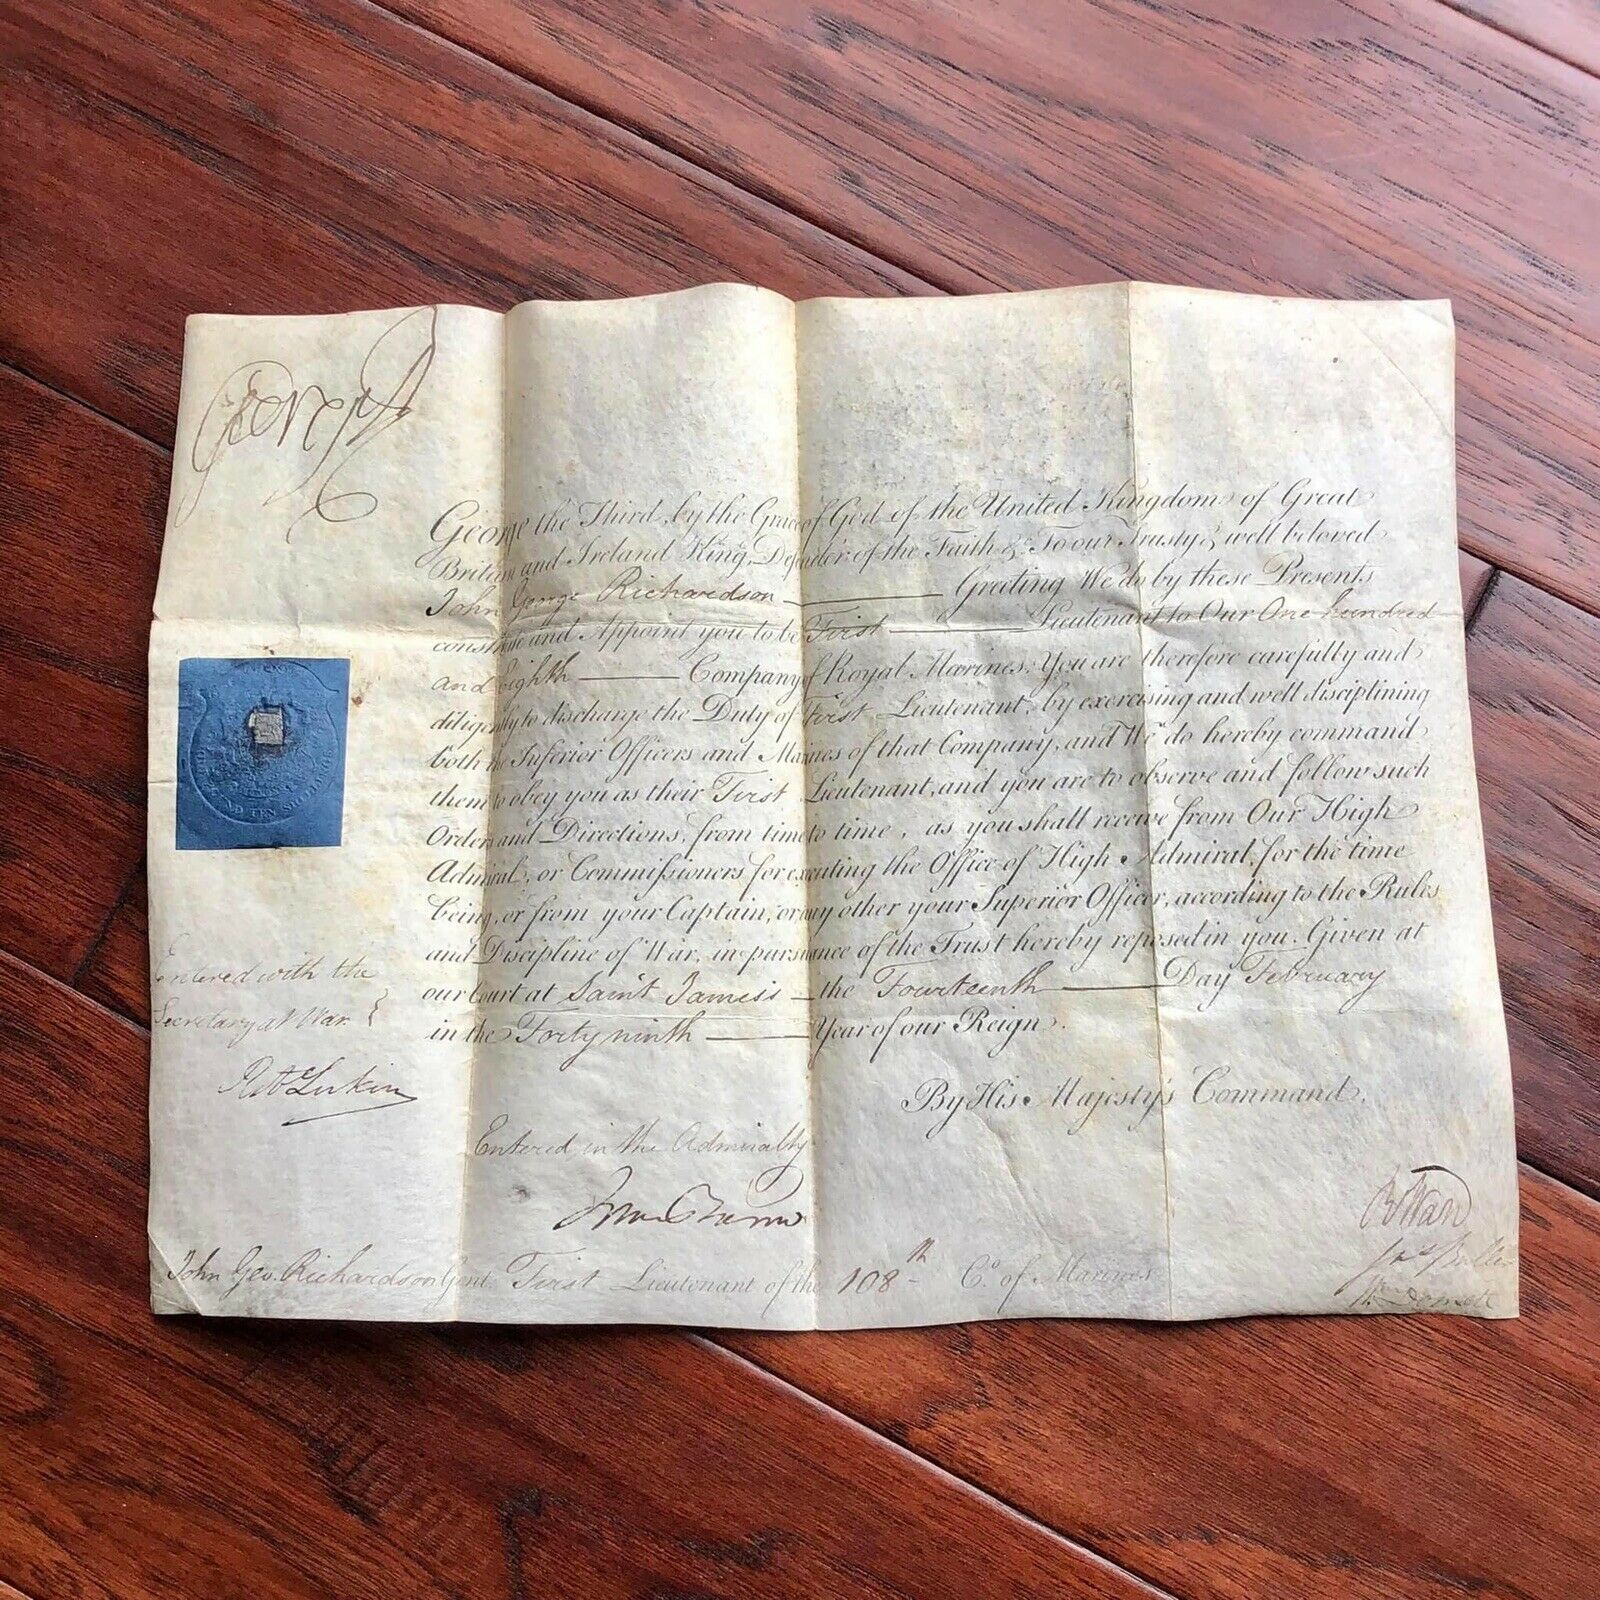 George R
George the Third, by the Grace of God of the United Kingdom of Great
Britain and Ireland King, Defender of the Faith &c. To our Trusty & well beloved
John George Richardson Greeting We do by these Presents
constitute and Appoint you to be First Lieutenant to Our One hundred
and Eighth Company of Royal Marines: You are therefore carefully and
diligently to discharge the Duty of First Lieutenant, by exercising and well disciplining
both the Inferior Officers and Marines of that Company, and We do hereby command
them to obey you as their First Lieutenant, and you are to observe and follow such
Orders and Directions, from time to time, as you shall receive from Our High
Admiral, or Commissioners for executing the Office of High Admiral, for the time
being, or from your Captain, or any other your Superior Officer, according to the Rules
and Discipline of War, in pursuance of the Trust hereby reposed in you. Given at
our Court at Saint James's the Fourteenth Day February
in the Forty ninth Year of our Reign.
By His Majesty's Command.
AND TEN SHILLINGS
Entered with the
Secretary at War
Lukin
Entered in the Admiralty
John Geo. Richardson Gent. First Lieutenant of the 108th Co. of Marines